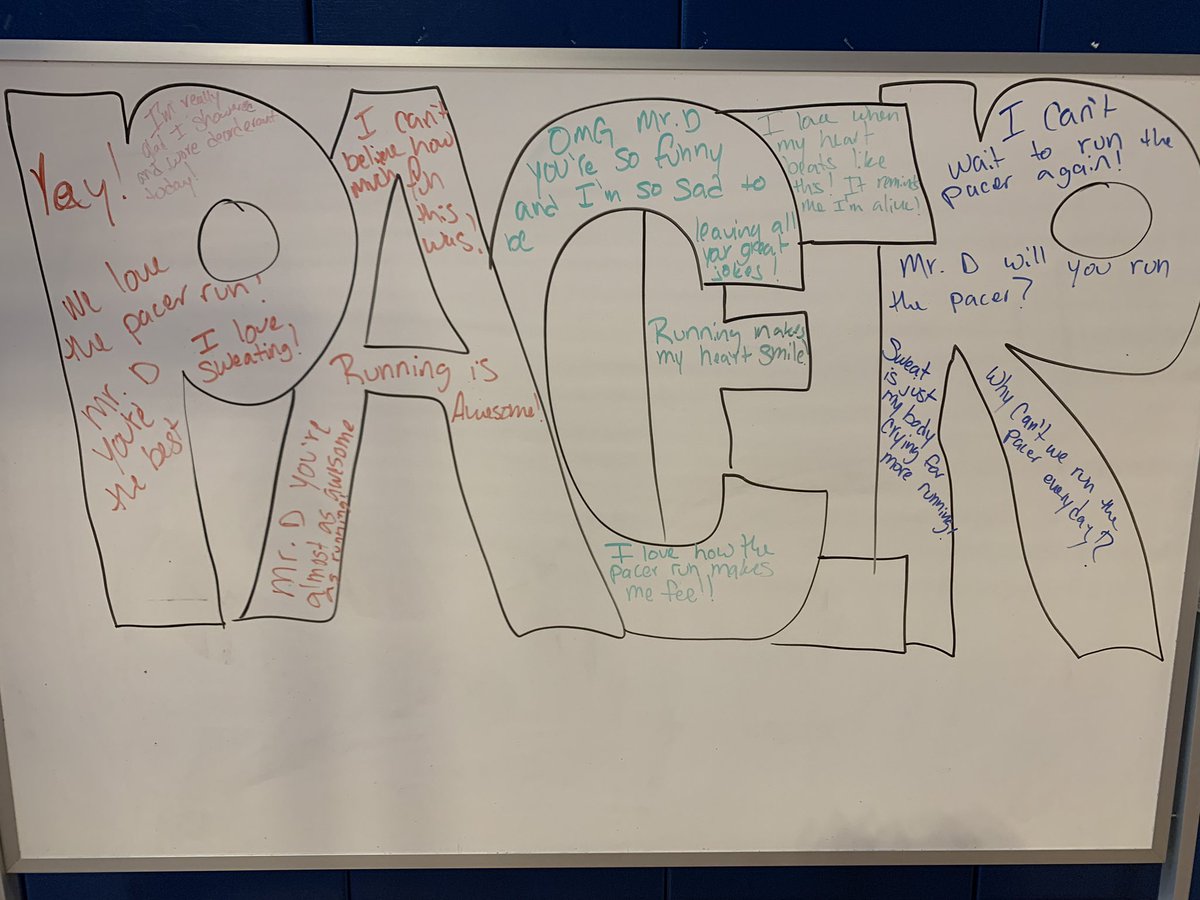 PACER
Yay!
I'm really
glad I showered
and wore deoderant
today!
We love
the pacer run!
I love
Sweating!
Mr. D
you're
the best
I can't
believe how
much fun
this
was!
Running is
Awesome!
Mr. D you're
almost as awesome
as running!
OMG Mr. D
you're so funny
and I'm so sad to
be
leaving all
your great
jokes!
I love when
my heart
beats like
this! It reminds
me I'm alive!
Running makes
my heart smile
I love how the
pacer run makes
me feel!
I Can't
wait to run the
pacer again!
Mr. D will you run
the pacer?
Sweat
is just
my body
crying for
more running!
Why Can't we run the
pacer everyday??